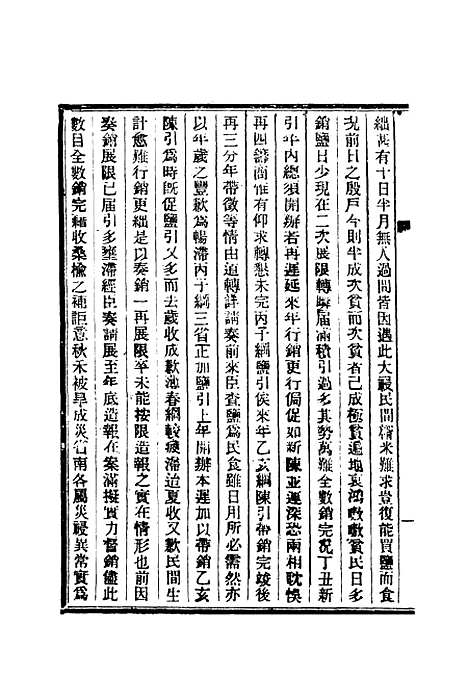 絀甚有十日半月無人過問皆因遇此大祲民間糈米難求豈復能買鹽而食
況前日之殷戶今則半成次貧而次貧者已成極貧遍地哀鴻嗷嗷貧民日多
銷鹽日少現在二次展限轉瞬屆滿積引過多其勢萬難全數銷完況丁丑新
引年內總須開辦若再遲延來年行銷更行侷促如新陳並運深恐兩相耽悞
再四籌商惟有仰求轉懇未完丙子綱鹽引俟來年乙亥綱陳引帶銷完竣後
再三分年帶徵等情由道轉詳請奏前來臣查鹽為民食雖日用所必需然亦
以年歲之豐歉為暢滯丙子綱三省正加鹽引上年開辦本遲加以帶銷乙亥
陳引為時既促鹽引又多而去歲收成歉池春綱較疲滯迨夏收又歉民間生
計愈難行銷更絀是以奏銷一再展限卒未能按限造報之實在情形也前因
奏銷展限已屆引多壅滯經臣奏請展至年底造報在案滿擬實力督銷儘此
數目全數銷完藉收桑榆之補詎意秋禾被旱成災省南各屬災祲異常實為